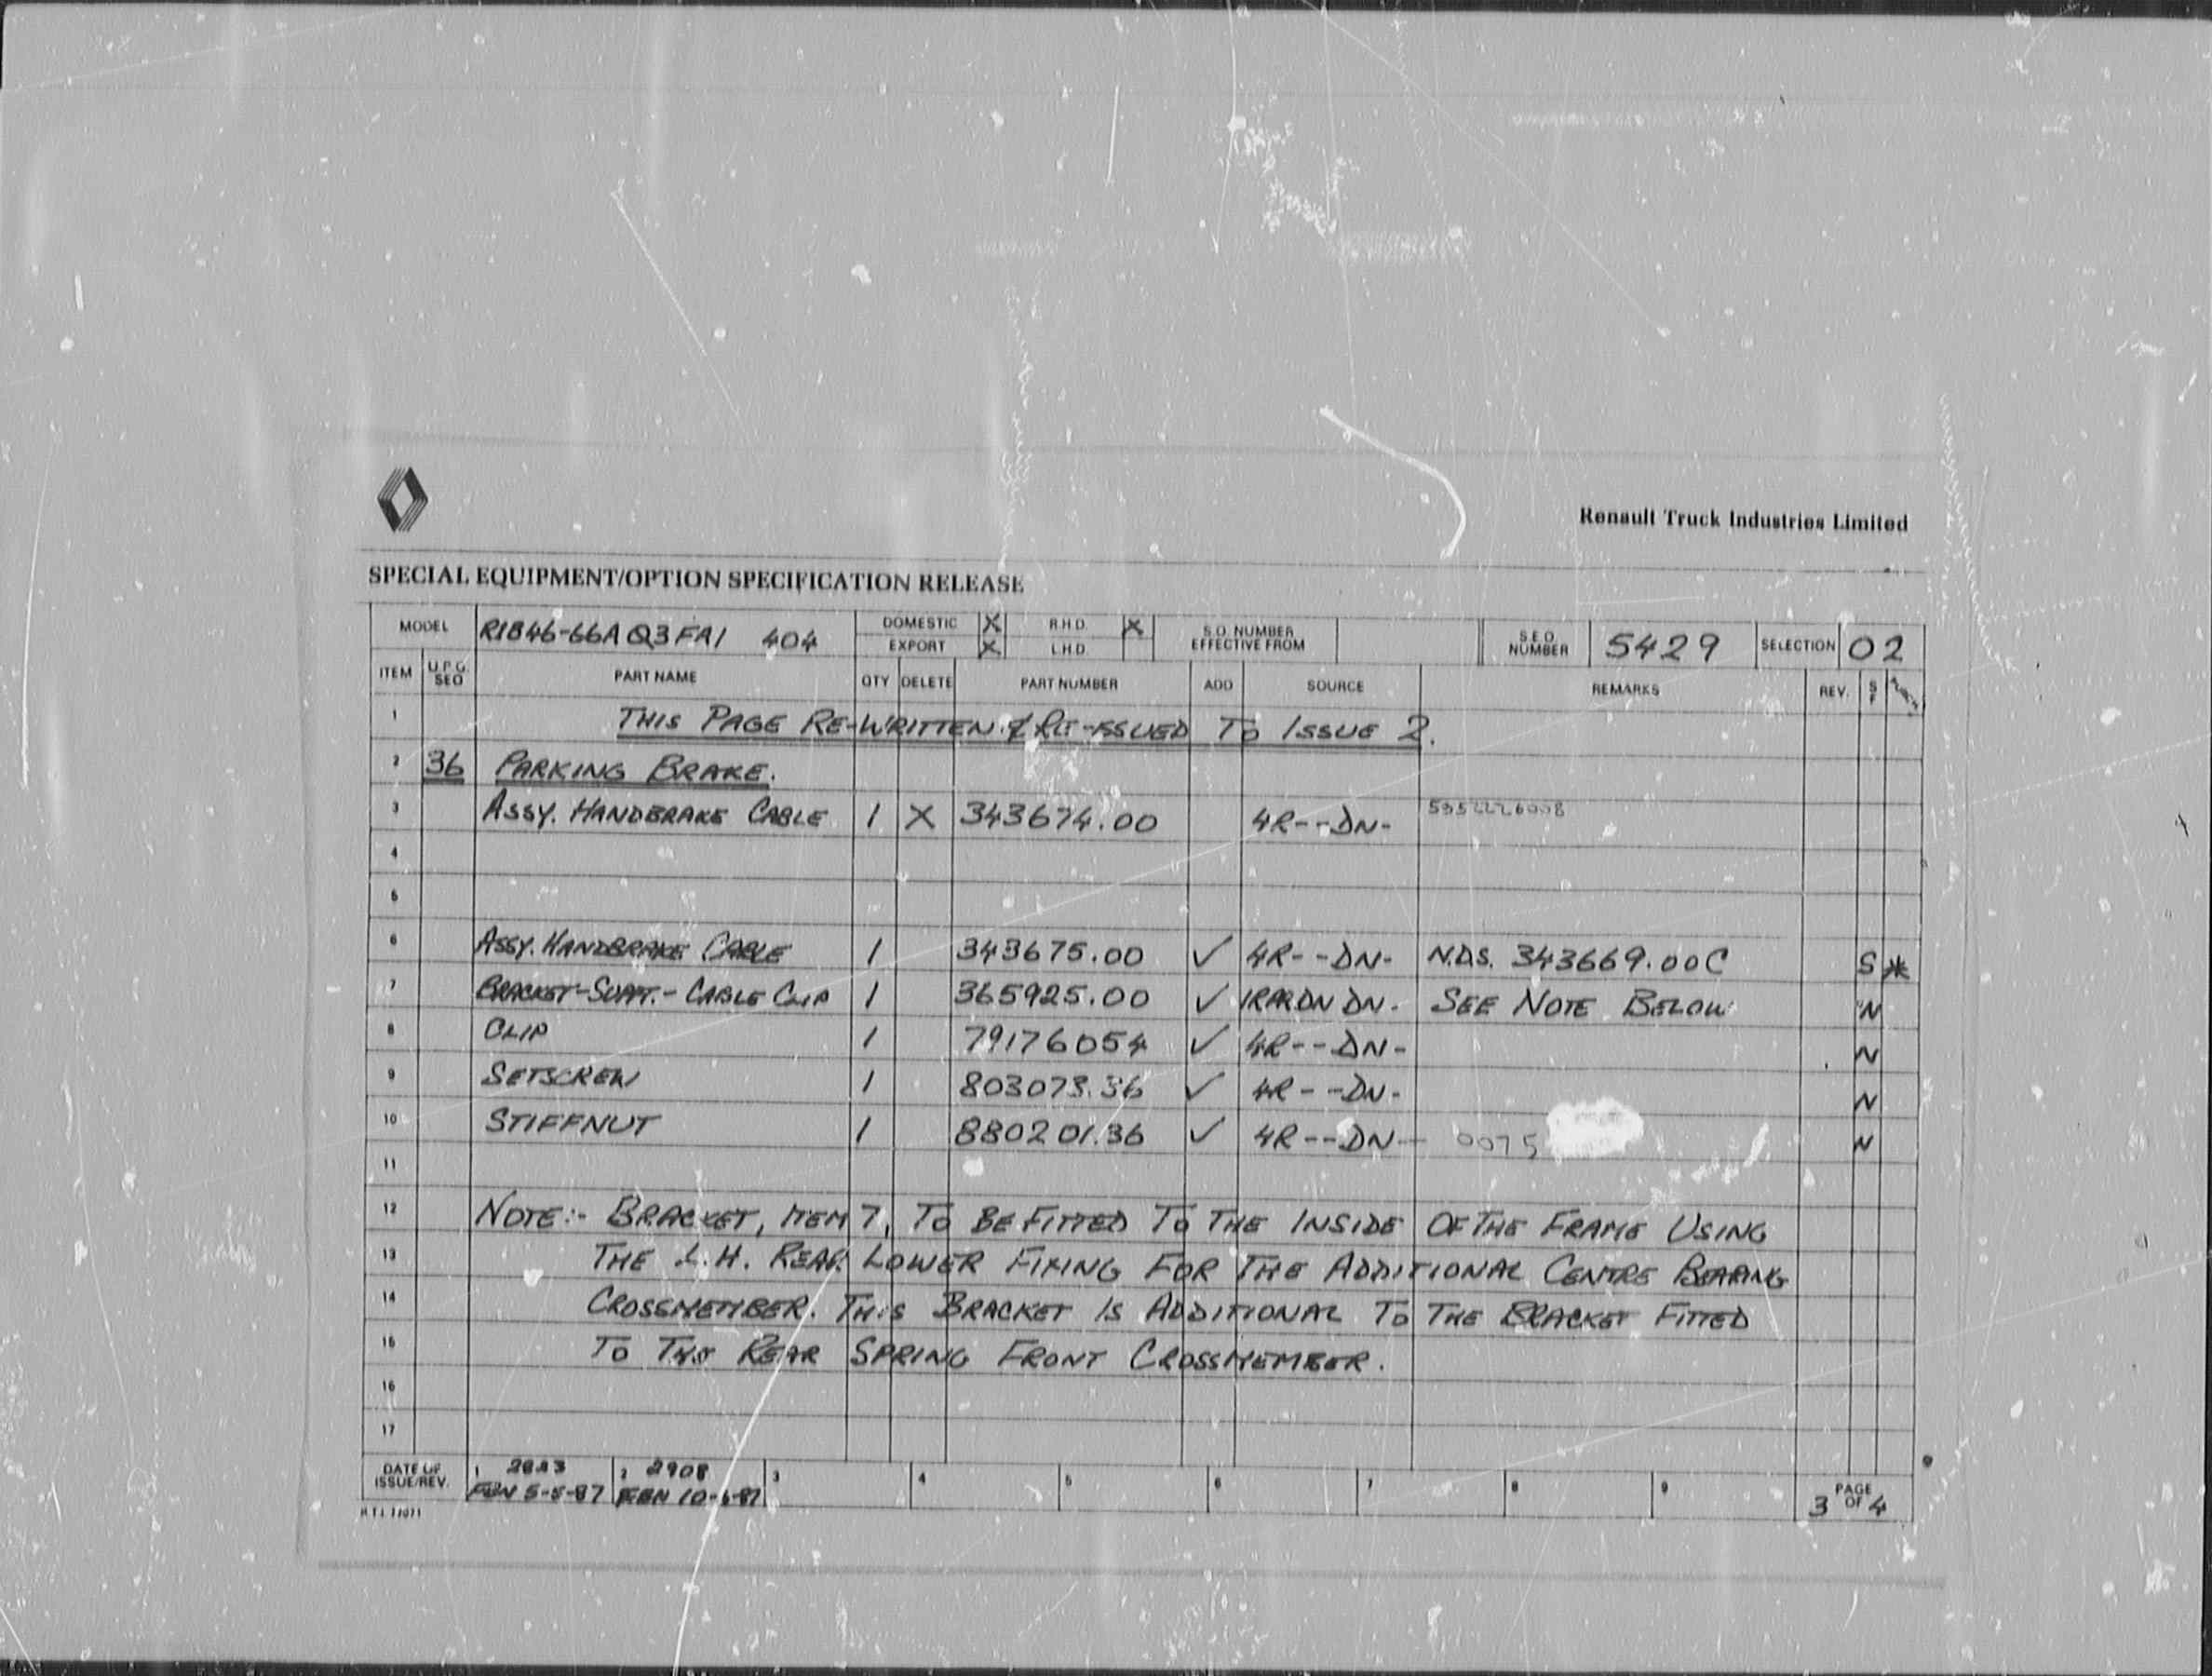 Renault Truck Industries Limited
SPECIAL EQUIPMENT/OPTION SPECIFICATION RELEASE
MODEL R1846-66A Q3 FA1 404 DOMESTIC X R.H.D. X S.O. NUMBER EFFECTIVE FROM S.E.O. NUMBER 5429 SELECTION 02
EXPORT X L.H.D.
ITEM U.P.G. SEQ PART NAME QTY DELETE PART NUMBER ADD SOURCE REMARKS REV. S
1 THIS PAGE RE-WRITTEN & RE-ISSUED TO ISSUE 2.
2 36 PARKING BRAKE.
3 ASSY. HANDBRAKE CABLE 1 X 343674.00 4R--DN-
4
5
6 ASSY. HANDBRAKE CABLE 1 343675.00 ✓ 4R--DN- N.D.S. 343669.00C S *
7 BRACKET-SUPT.-CABLE CLIP 1 365925.00 ✓ DN DN- SEE NOTE BELOW N
8 CLIP 1 79176054 ✓ 4R--DN- N
9 SETSCREW 1 803073.36 ✓ 4R--DN- N
10 STIFFNUT 1 880201.36 ✓ 4R--DN- 0075 N
11
12 NOTE:- BRACKET, ITEM 7, TO BE FITTED TO THE INSIDE OF THE FRAME USING
13 THE L.H. REAR LOWER FIXING FOR THE ADDITIONAL CENTRE BEARING
14 CROSSMEMBER. THIS BRACKET IS ADDITIONAL TO THE BRACKET FITTED
15 TO THE REAR SPRING FRONT CROSSMEMBER.
16
17
DATE OF ISSUE/REV. 1 5-5-87 2 2908 3 4 5 6 7 8 9 PAGE 3 OF 4